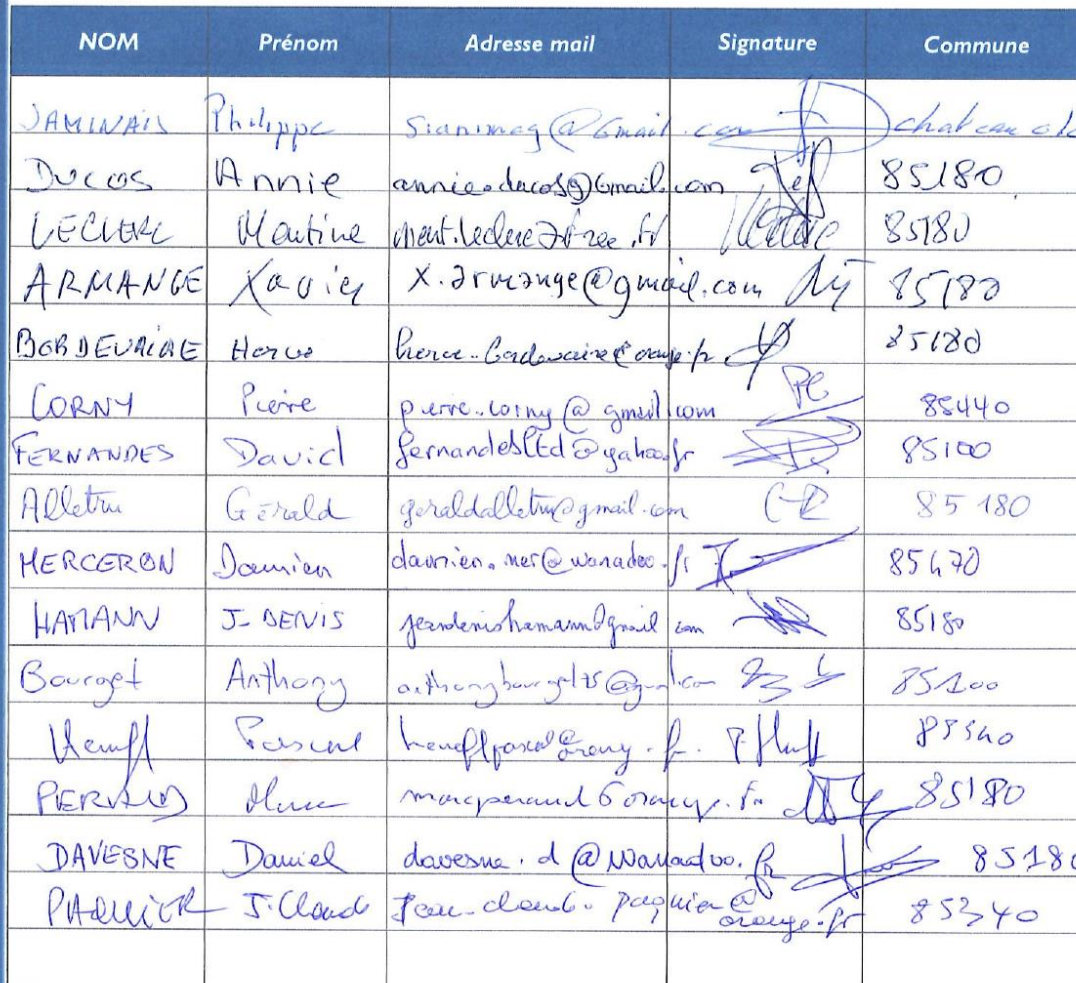 NOM Prénom Adresse mail Signature Commune
JAMINAIS Philippe sianimag@Gmail.com chateau olo
Ducos Annie annie.ducos9@Gmail.com 85180
LECLERC Martine mart.leclerc7free.fr 85180
ARMANGE Xavier x.armange@gmail.com 85180
BORDEVAIRE Herve herve.bordevaire@orange.fr 85180
CORNY Pierre pierre.corny@gmail.com PC 85440
FERNANDES David fernandesltd@yahoo.fr 85100
Alletru Gérald geraldalletru@gmail.com 85180
MERCERON Damien damien.mer@wanadoo.fr 85470
HAMANN J-DENIS jeandenishamann@gmail com 85180
Bourget Anthony anthonybourget75@gmail.com 85100
Pascal 85540
PERAUD Marc marcperaud@orange.fr 85180
DAVESNE Daniel davesne.d@wanadoo.fr 85180
PAQUIER J.Claude Jean-claude.paquier@
orange.fr 85340